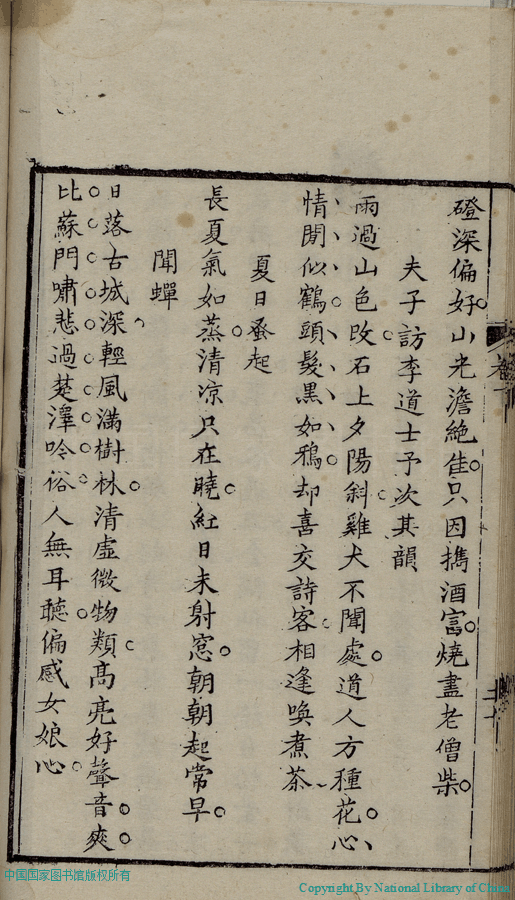 磴深偏好山光澹絶隹只因携酒富燒盡老僧柴
夫子訪李道士予次其韻
雨過山色改石上夕陽斜雞犬不聞處道人方種花心
情閒似鶴頭髮黑如鴉却喜交詩客相逢喚煮茶
夏日蚤起
長夏氣如蒸清凉只在曉紅日未射窓朝朝起常早
聞蟬
日落古城深輕風滿樹林清虛微物類高亮好聲音爽
比蘇門嘯悲過楚澤吟俗人無耳聽偏感女娘心
卷
中国国家图书馆版权所有
Copyright By National Library of China